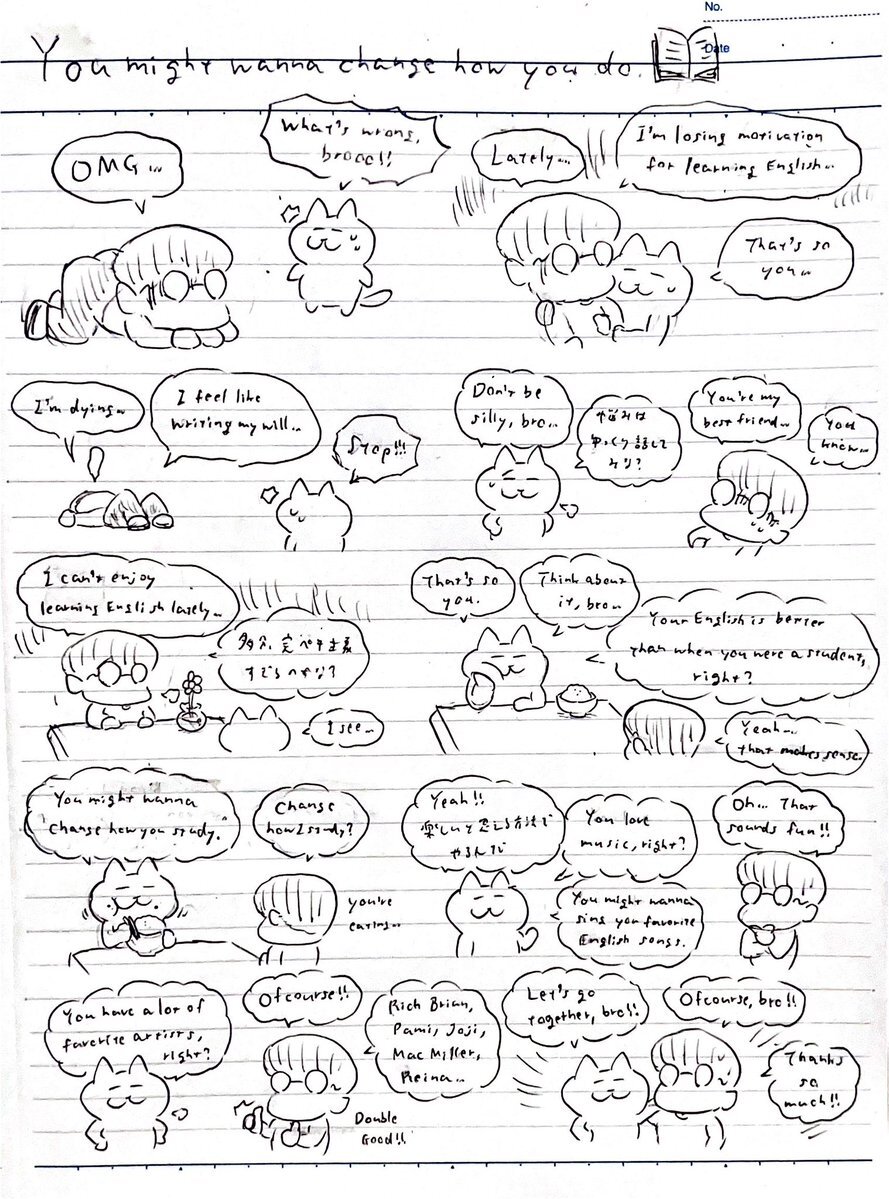 No.
Date
You might wanna change how you do.
OMG...
What's wrong,
brooo!!
Lately...
I'm losing motivation
for learning English...
That's so
you...
I'm dying...
I feel like
writing my will...
Stop!!!
Don't be
silly, bro...
悩みは
ゆっくり話して
みな?
You're my
best friend...
You
know...
I can't enjoy
learning English lately...
多分、完ペキ主義
I see...
That's so
you.
Think about
it, bro...
Your English is better
than when you were a student,
right?
Yeah...
that makes sense.
You might wanna
"change how you study."
Change
how I study?
you're
eating...
Yeah!!
楽しいと思える方法で
You love
music, right?
You might wanna
sing you favorite
English songs.
Oh... That
sounds fun!!
You have a lot of
favorite artists,
right?
Ofcourse!!
Rich Brian,
Pami, Joji,
Mac Miller,
Reina...
Double
Good!!
Let's go
together, bro!!
Ofcourse, bro!!
Thanks
so
much!!